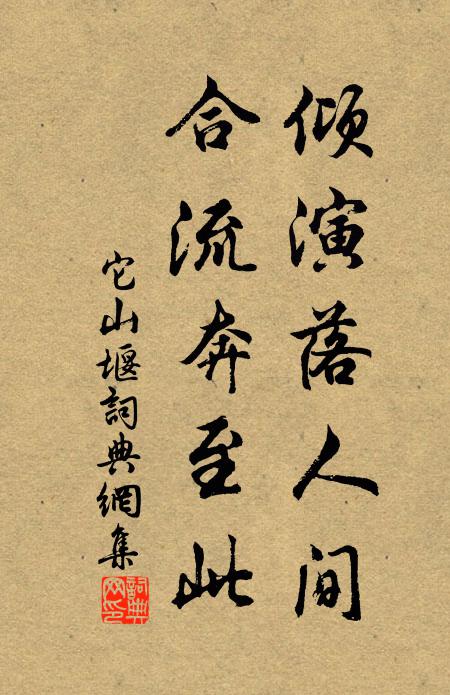 倾演落人间
合流奔至此
它山堰詞典網集
詞典
网印